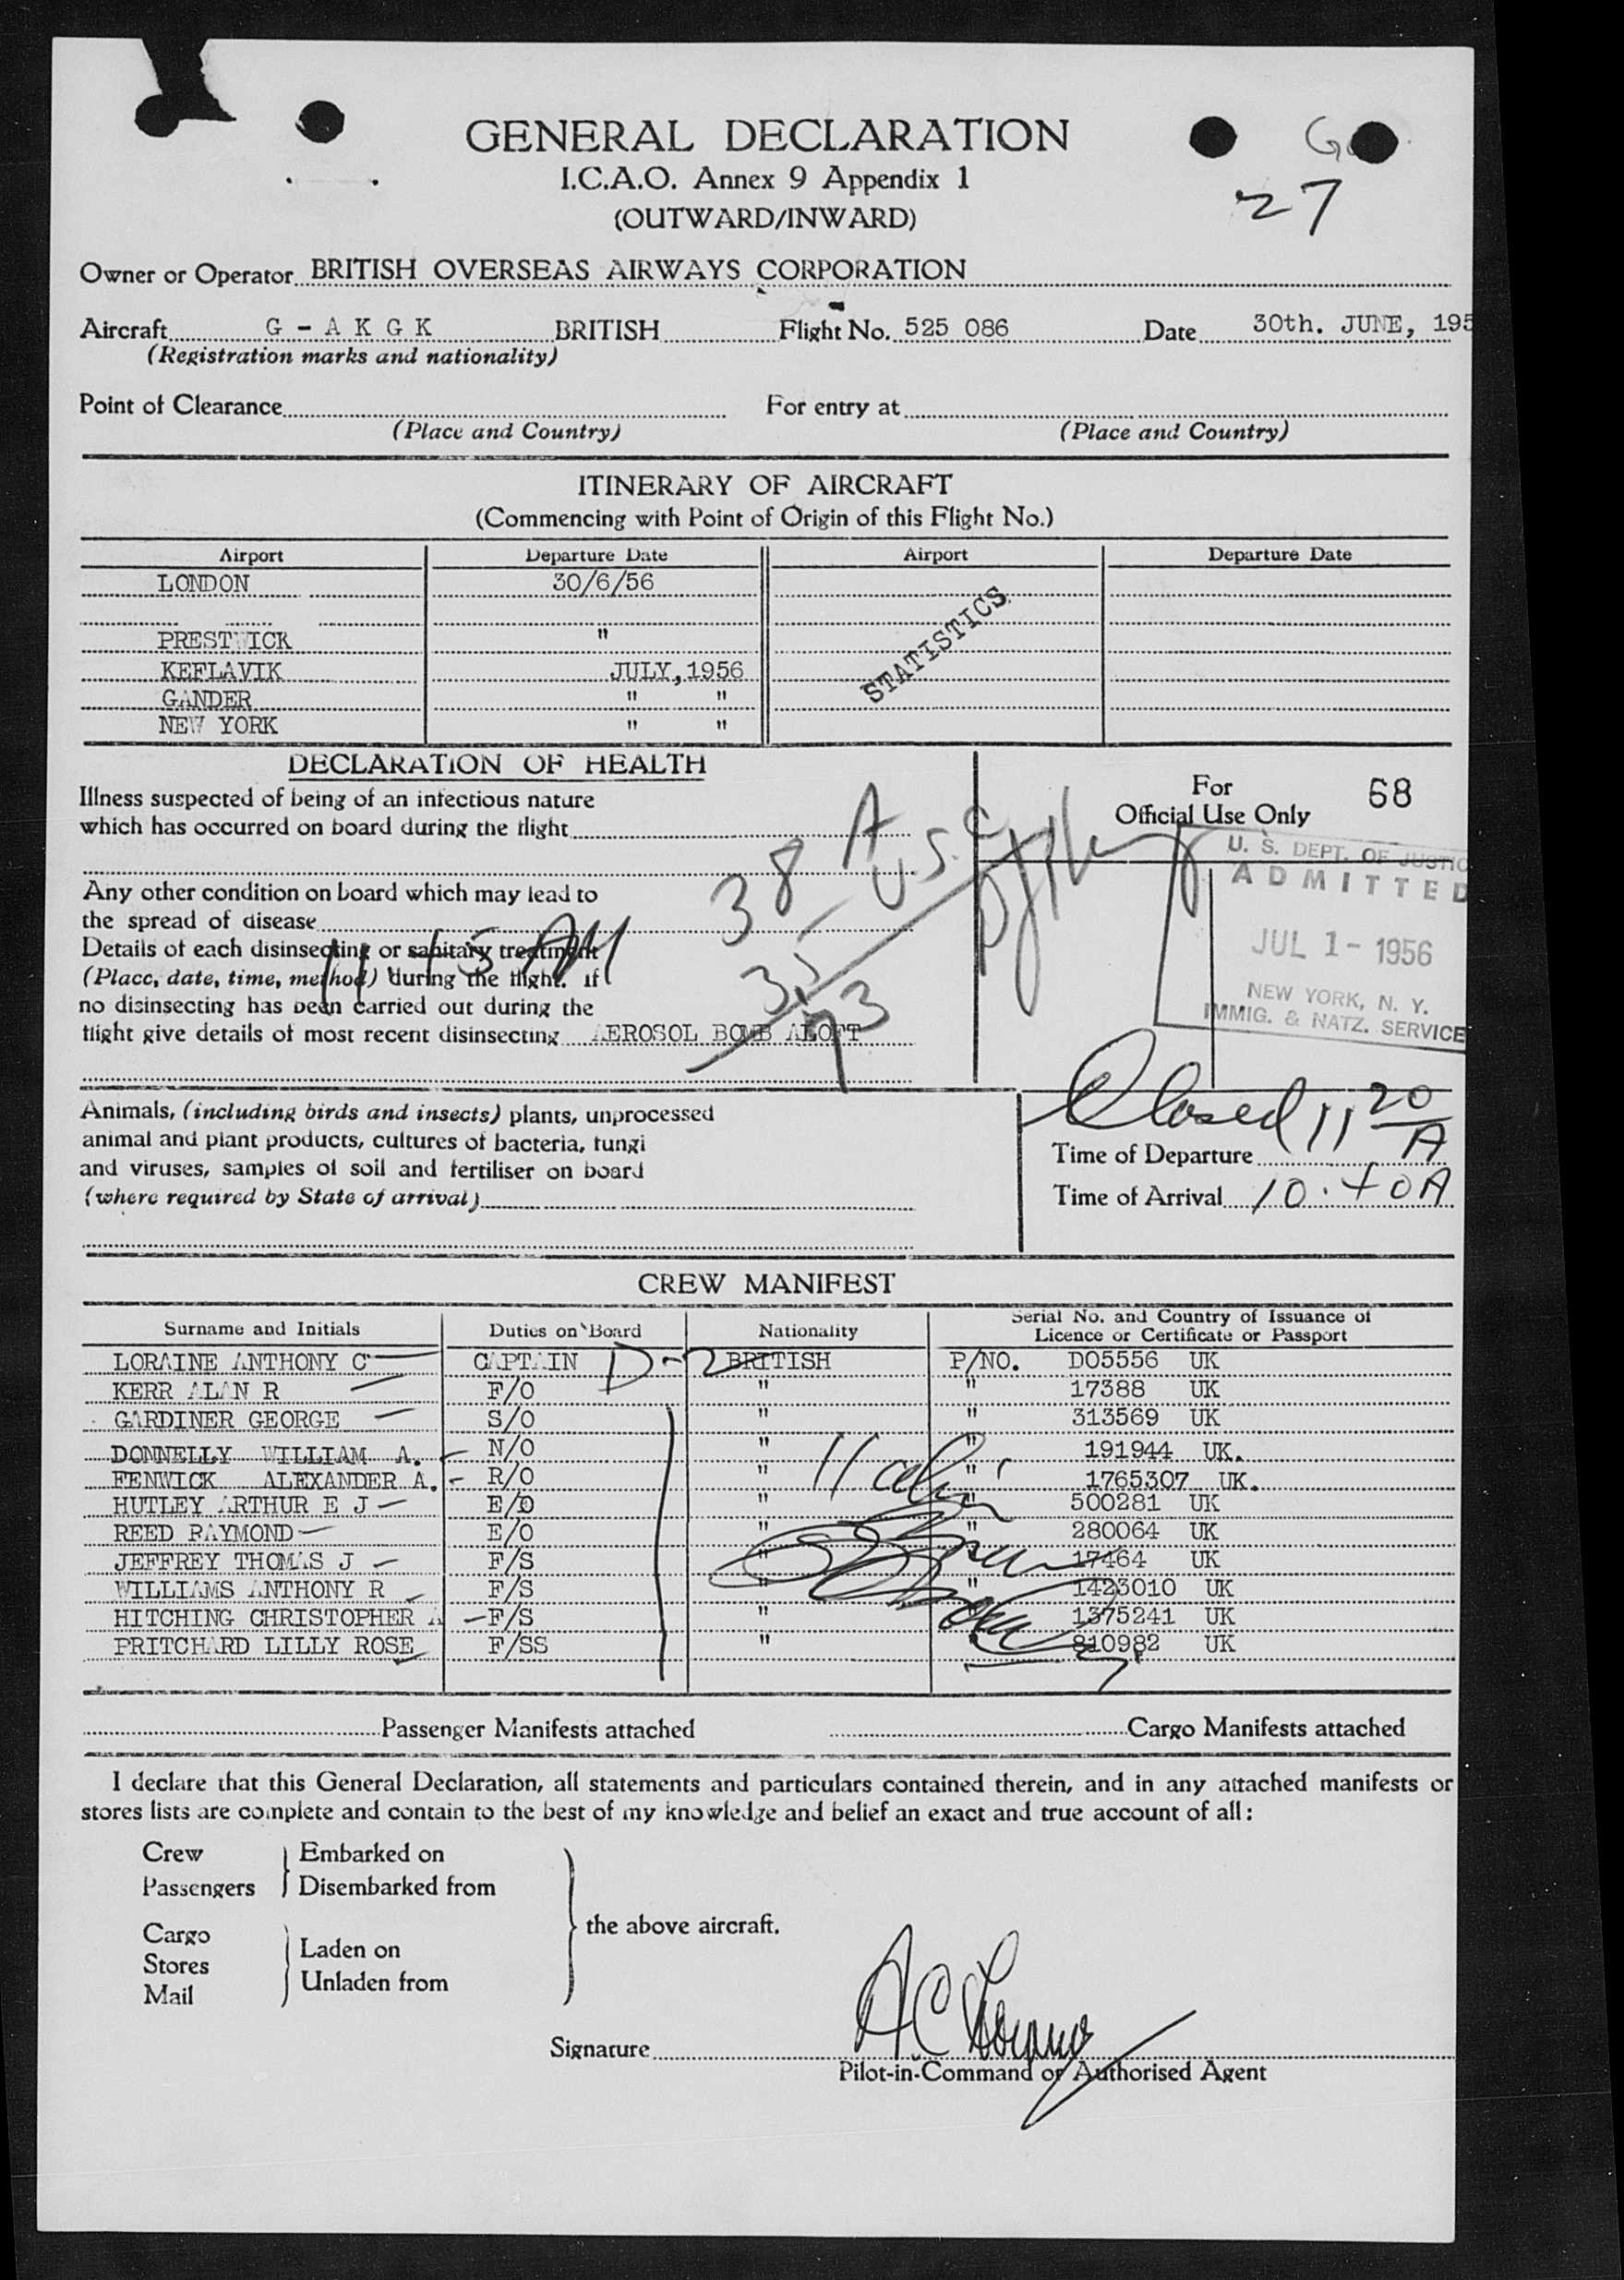 GENERAL DECLARATION
I.C.A.O. Annex 9 Appendix 1
(OUTWARD/INWARD)
27
Owner or Operator BRITISH OVERSEAS AIRWAYS CORPORATION
Aircraft G - A K G K BRITISH Flight No. 525 086 Date 30th. JUNE, 195
(Registration marks and nationality)
Point of Clearance For entry at
(Place and Country) (Place and Country)
ITINERARY OF AIRCRAFT
(Commencing with Point of Origin of this Flight No.)
Airport Departure Date Airport Departure Date
LONDON 30/6/56
PRESTWICK "
KEFLAVIK JULY, 1956
GANDER " "
NEW YORK " "
STATISTICS
DECLARATION OF HEALTH
Illness suspected of being of an infectious nature
which has occurred on board during the flight
Any other condition on board which may lead to
the spread of disease
Details of each disinsecting or sanitary treatment
(Place, date, time, method) during the flight. If
no disinsecting has been carried out during the
flight give details of most recent disinsecting AEROSOL BOMB ALOFT
11 45 AM
38 A
35 U.S.C
73
For 68
Official Use Only
U. S. DEPT. OF JUSTIC
ADMITTED
JUL 1 - 1956
NEW YORK, N. Y.
IMMIG. & NATZ. SERVICE
Animals, (including birds and insects) plants, unprocessed
animal and plant products, cultures of bacteria, fungi
and viruses, samples of soil and fertiliser on board
(where required by State of arrival)
Closed 11 20 A
Time of Departure
Time of Arrival 10.40A
CREW MANIFEST
Surname and Initials Duties on Board Nationality Serial No. and Country of Issuance of Licence or Certificate or Passport
LORAINE ANTHONY C CAPTAIN D-2 BRITISH P/NO. D05556 UK
KERR ALAN R F/O " " 17388 UK
GARDINER GEORGE S/O " " 313569 UK
DONNELLY WILLIAM A. N/O " " 191944 UK.
FENWICK ALEXANDER A. R/O " " 1765307 UK.
HUTLEY ARTHUR E J E/O " " 500281 UK
REED RAYMOND E/O " " 280064 UK
JEFFREY THOMAS J F/S " " 17464 UK
WILLIAMS ANTHONY R F/S " " 1423010 UK
HITCHING CHRISTOPHER A F/S " " 1375241 UK
PRITCHARD LILLY ROSE F/SS " " 810982 UK
Passenger Manifests attached Cargo Manifests attached
I declare that this General Declaration, all statements and particulars contained therein, and in any attached manifests or
stores lists are complete and contain to the best of my knowledge and belief an exact and true account of all:
Crew Embarked on
Passengers Disembarked from
the above aircraft.
Cargo Laden on
Stores Unladen from
Mail
Signature A C Loraine
Pilot-in-Command or Authorised Agent